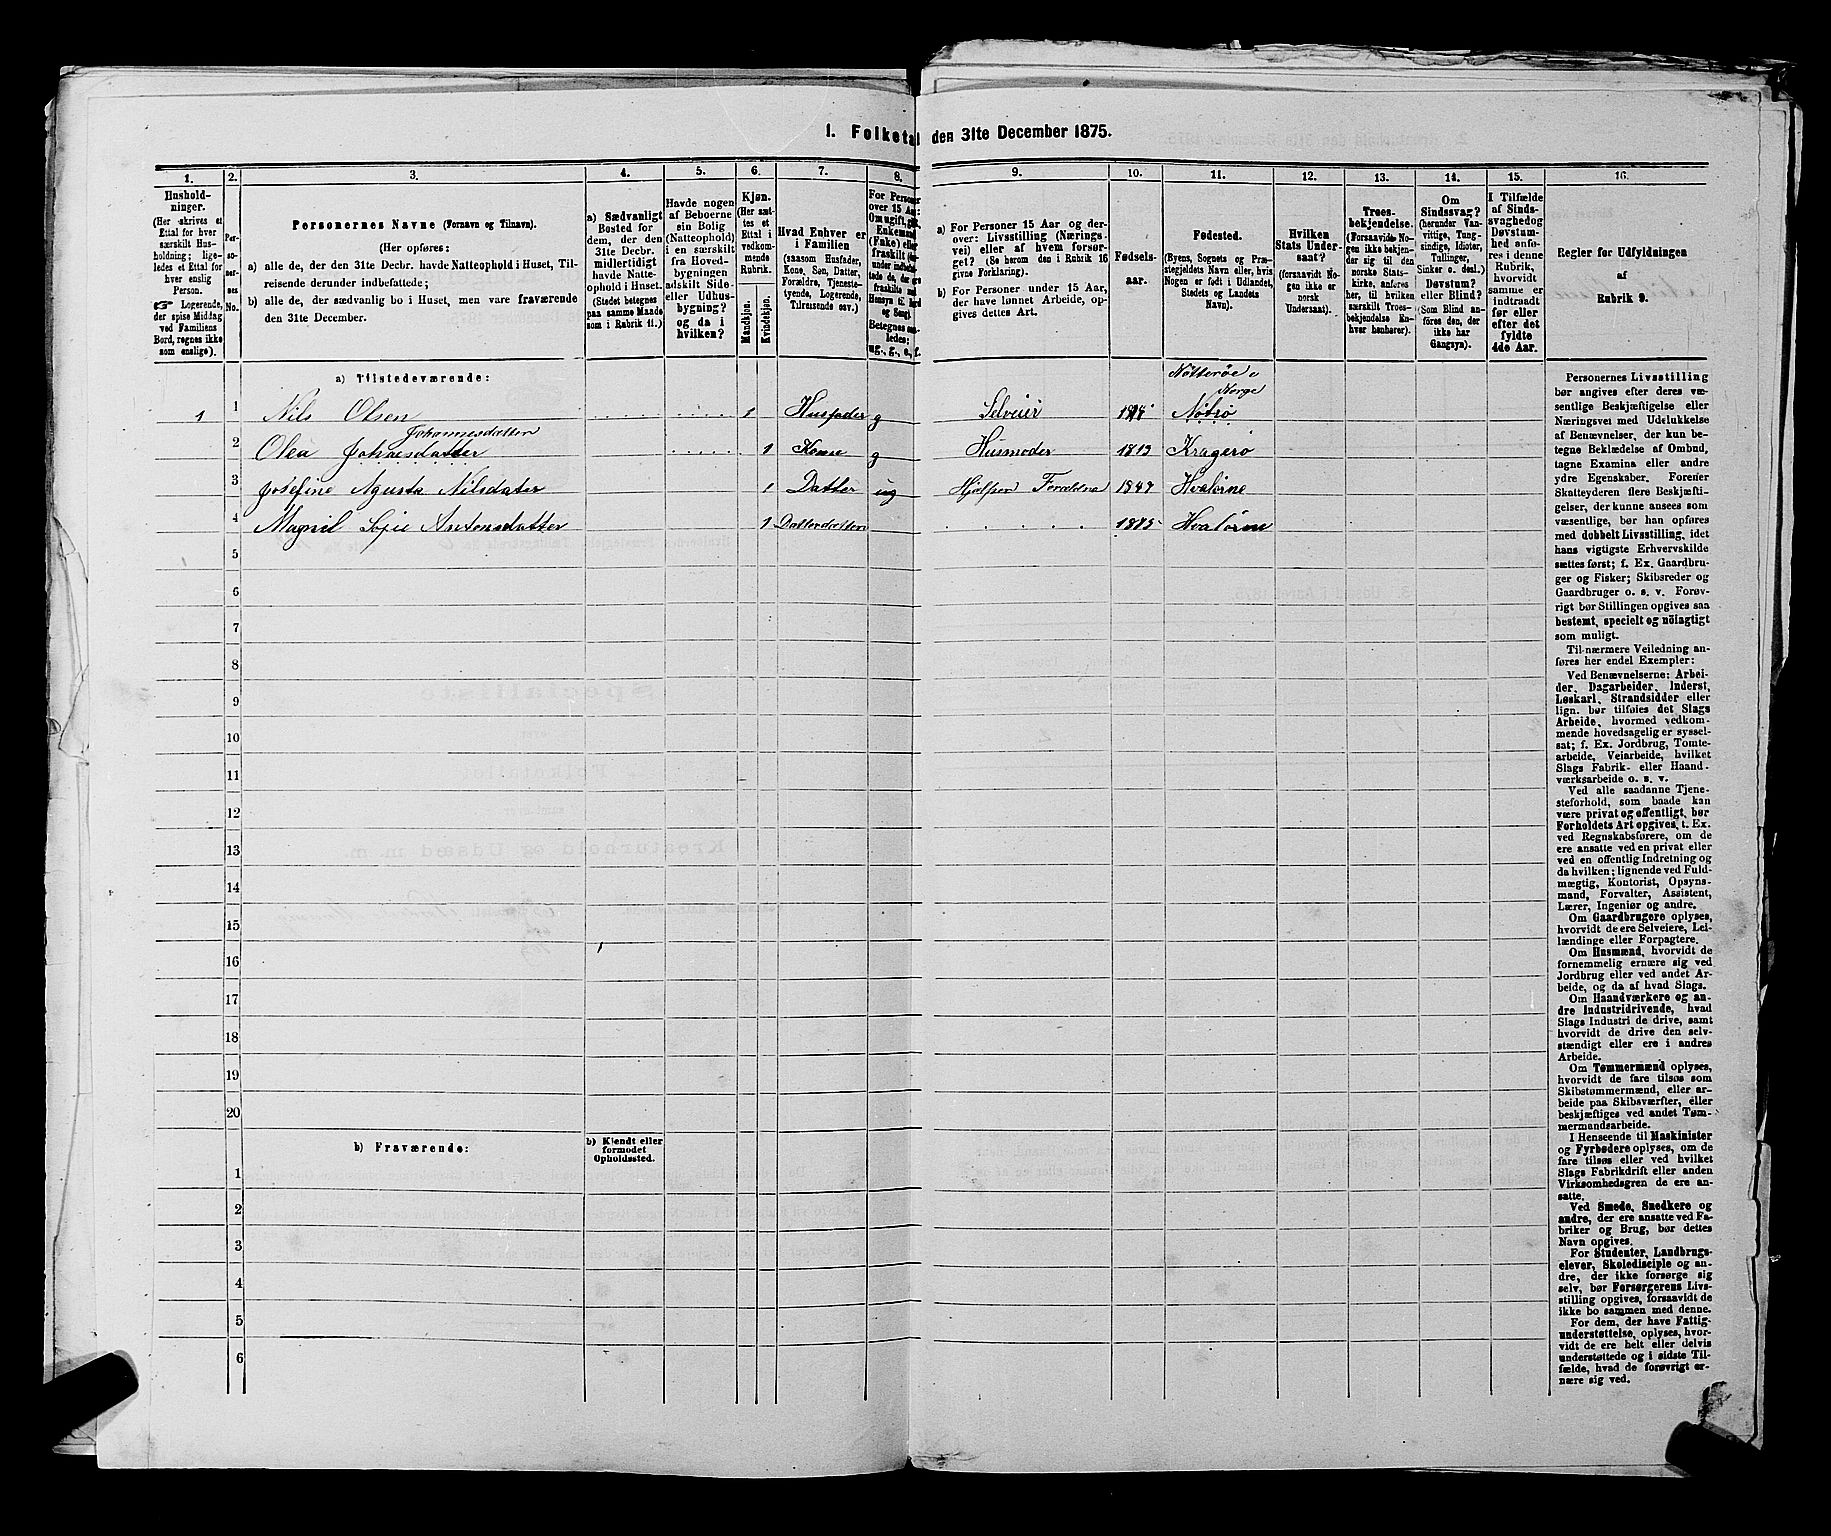 1. Folketal den 31te December 1875.
1.
2.
3.
4.
5.
6.
7.
8.
9.
10.
11.
12.
13.
14.
15.
16.
Hushold-
ninger.
(Her skrives et
Ettal for hver
særskilt Hus-
holdning; lige-
ledes et Ettal for
hver enslig
Person.
☞ Logerende,
der spise Middag
ved Familiens
Bord, regnes ikke
som enslige).
Per-
so-
ner-
nes
No.
Personernes Navne (Fornavn og Tilnavn).
(Her opføres:
a) alle de, der den 31te Decbr. havde Natteophold i Huset, Til-
reisende derunder indbefattede;
b) alle de, der sædvanlig bo i Huset, men vare fraværende
den 31te December.
a) Sædvanligt
Bosted for
dem, der den
31te Decbr.
midlertidigt
havde Natte-
ophold i Huset.
(Stedet betegnes
paa samme Maade
som i Rubrik 11.)
Havde nogen
af Beboerne
sin Bolig
(Natteophold)
i en særskilt
fra Hoved-
bygningen
adskilt Side-
eller Udhus-
bygning?
og da i
hvilken?
Kjøn.
(Her sæt-
tes et
Ettal i
vedkom-
mende
Rubrik.
Mandkjøn.
Kvindekjøn.
Hvad Enhver er
i Familien
(saasom Husfader,
Kone, Søn, Datter,
Forældre, Tjeneste-
tyende, Logerende,
Tilreisende osv.)
For Personer
over 15 Aar:
Om ugift, gift,
Enkemand
(Enke) eller
fraskilt
Betegnes saa-
ledes:
ug., g., e., f.
a) For Personer 15 Aar og der-
over: Livsstilling (Nærings-
vei) eller af hvem forsør-
get? (Se herom den i Rubrik 16
givne Forklaring).
b) For Personer under 15 Aar,
der have lønnet Arbeide, op-
gives dettes Art.
Fødsels-
aar.
Fødested.
(Byens, Sognets og Præ-
stegjeldets Navn eller, hvis
Nogen er født i Udlandet,
Stedets og Landets
Navn).
Hvilken
Stats Under-
saat?
(forsaavidt No-
gen ikke er
norsk
Undersaat).
Troes-
bekjendelse.
(Forsaavidt No-
gen ikke bekjen-
der sig til den
norske Stats-
kirke, anføres
her, til hvilken
særskilt Troes-
bekjendelse En-
hver henhører).
Om
Sindssvag?
(herunder Van-
vittige, Tung-
sindige, Idioter,
Tullinger,
Sinker o. desl.)
Døvstum?
eller Blind?
(Som Blind an-
føres den, der
ikke har
Gangsyn).
I Tilfælde
af Sinds-
svaghedog
Døvstum-
hed anfø-
res i denne
Rubrik,
hvorvidt
samme er
indtraadt
før eller
efter det
fyldte
4de Aar.
Regler for Udfyldningen
af
Rubrik 9.
a) Tilstedeværende:
Nøtterøe
Norge
1 1 Nils Olsen 1 Husfader g Selveier Nøtrø
Johannesdatter
2 Olea Johnesdatter 1 Kone g Husmoder 1813 Kragerø
3 Josefine Agusta Nilsdater 1 Datter ug Hjelper Foreldrne 1847 Hvalørne
4 Magnil Sofie Antonsdatter 1 Datterdatter 1875 Hvalørne
5
6
7
8
9
10
11
12
13
14
15
16
17
18
19
20
b) Fraværende:
b) Kjendt eller
formodet
Opholdssted.
1
2
3
4
5
6
Personernes Livsstilling
bør angives efter deres væ-
sentlige Beskjæftigelse eller
Næringsvei med Udelukkelse
af Benævnelser, der kun be-
tegne Beklædelse af Ombud,
tagne Examina eller andre
ydre Egenskaber. Forener
Skatteyderen flere Beskjæfti-
gelser, der kunne ansees som
væsentlige, bør han opføres
med dobbelt Livsstilling, idet
hans vigtigste Erhvervskilde
sættes først; f. Ex. Gaardbru-
ger og Fisker; Skibsreder og
Gaardbruger o. s. v. Forøv-
rigt bør Stillingen opgives saa
bestemt, specielt og nøiagtigt
som muligt.
Til nærmere Veiledning an-
føres her endel Exempler:
Ved Benævnelserne: Arbei-
der, Dagarbeider, Inderst,
Løskarl, Strandsidder eller
lign. bør tilføies det Slags
Arbeide, hvormed vedkom-
mende hovedsagelig er syssel-
sat; f. Ex. Jordbrug, Tomte-
arbeide, Veiarbeide, hvilket
Slags Fabrik- eller Haand-
værksarbeide o. s. v.
Ved alle saadanne Tjene-
steforhold, som baade kan
være privat og offentligt, bør
Forholdets Art opgives, t. Ex.
ved Regnskabsførere, om de
ere ansatte ved en privat eller
ved en offentlig Indretning og
da hvilken; lignende ved Fuld-
mægtig, Kontorist, Opsyns-
mand, Forvalter, Assistent,
Lærer, Ingeniør og andre.
Om Gaardbrugere oplyses,
hvorvidt de ere Selveiere, Lei-
lændinge eller Forpagtere.
Om Husmænd, hvorvidt de
fornemmelig ernære sig ved
Jordbrug eller ved andet Ar-
beide, og da af hvad Slags.
Om Haandværkere og an-
dre Industridrivende, hvad
Slags Industri de drive, samt
hvorvidt de drive den selv-
stændigt eller ere i andres
Arbeide.
Om Tømmermænd oplyses,
hvorvidt de fare tilsøs som
Skibstømmermænd, eller ar-
beide paa Skibsværfter, eller
beskjæftiges ved andet Tøm-
mermandsarbeide.
I Henseende til Maskinister
og Fyrbødere oplyses, om de
fare tilsøs eller ved hvilket
Slags Fabrikdrift eller anden
Virksomhedsgren de ere an-
satte.
Ved Smede, Snedkere og
andre, der ere ansatte ved Fa-
briker og Brug, bør dettes
Navn opgives.
For Studenter, Landbrugs-
elever, Skoledisciple og an-
dre, der ikke forsørge sig
selv, bør Forsørgerens Livs-
stilling opgives, forsaavidt de
ikke bo sammen med denne.
For dem, der have Fattig-
understøttelse, oplyses, hvor-
vidt de ere helt eller delvis
understøttede og i sidste Til-
fælde, hvad de forøvrigt er-
nære sig ved.